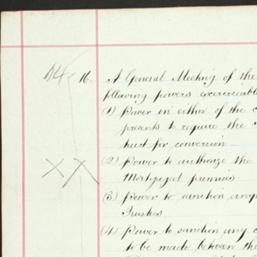 14 16. A General Meeting of the
following powers exerciseable
(1) Power in either of the
presents to require the
trust for conversion
(2) Power to authorize the
Mortgaged premises
(3) Power to sanction any
Trustees.
(4) Power to sanction any c
to be made between the